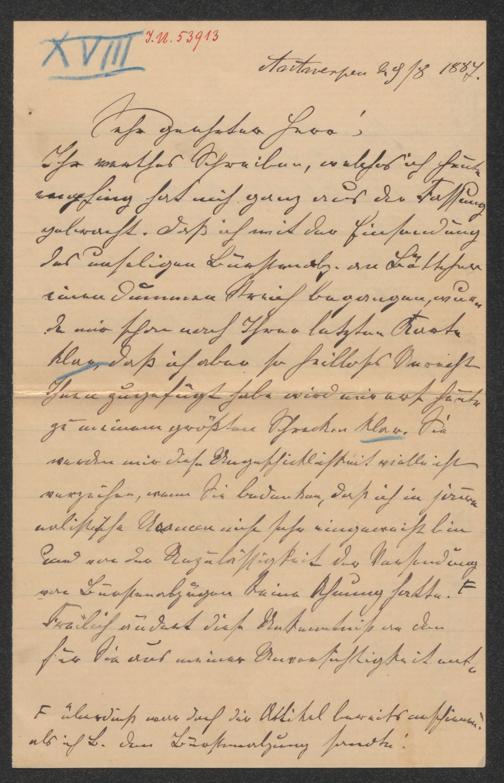 XVIII
I.N. 53913
Antwerpen 29/8 1887.
Sehr geehrter Herr!
Ihr werthes Schreiben, welches ich heute
empfing hat mich ganz aus der Fassung
gebracht. Daß ich mit der Einsendung
des unseligen Bürstenabz. an Böttcher
einen dummen Streich begangen, wur-
de mir schon nach Ihrer letzten Karte
klar, daß ich aber so heilloses Unrecht
Ihnen zugefügt habe wird mir erst heute
zu meinem größten Schrecken klar. Sie
werden mir diese Ungeschicklichkeit vielleicht
verzeihen, wenn Sie bedenken, daß ich in journa-
nalistische Usancen nicht sehr eingeweiht bin
und von der Unzulässigkeit der Versendung
von Bürstenabzügen keine Ahnung hatte. F
Freilich ändert diese Unkenntniß an den
für Sie aus meiner Unvorsichtigkeit ent-
F überdieß war doch der Artikel bereits erschienen,
als ich B. den Bürstenabzug sandte!